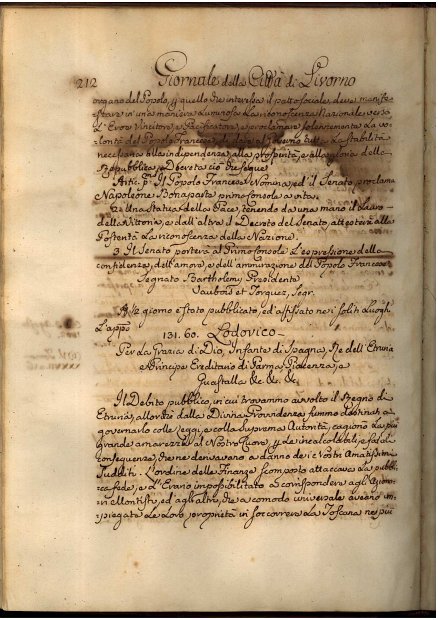 212 Giornale della Città di Livorno
organo del Popolo, e quello che interessa il patto sociale, deve manife-
stare in una maniera luminosa la riconoscenza Nazionale verso
L'Eroe Vincitore, e Pacificatore, e proclamare solennemente la vo-
lontà del Popolo francese di dare al Governo tutta la stabilità
necessaria alla indipendenza, alla prosperità, e alla gloria della
Repubblica, e Decreta ciò che segue
Artic. p.º Il Popolo Francese Nomina, ed il Senato proclama
Napoleone Bonaparte primo Console a vita.
2 Una Statua della Pace, tenendo da una mano il Lauro
della Vittoria, e dall'altra il Decreto del Senato, attesterà alla
Posterità La riconoscenza della Nazione.
3 Il Senato porterà al Primo Console L'espressione della
confidenza, dell'amore, e dell'ammirazione del Popolo Francese
Segnato Barthelemy Presidente
Vaubois et Forguez, Segr.
A 1/2 giorno è stato pubblicato, ed affissato nei soliti Luoghi
L'appº
131. 60. Lodovico
Per la Grazia di Dio, Infante di Spagna, Re dell'Etruria
e Principe Ereditario di Parma Piacenza, e
Guastalla &c. &c. &c.
Il Debito pubblico, in cui trovammo avvolto il Regno di
Etruria, allorché dalla Divina Provvidenza fummo destinati a
governarlo colle Leggi, e colla Suprema Autorità, cagionò la più
grande amarezza al Nostro Cuore, per le incalcolabili, e fatali
conseguenze, che ne derivavano a danno dei Nostri Amatissimi
Sudditi. L'ordine delle Finanze scomposto attaccava La pubbli-
ca fede, e L'Erario impossibilitato a corrispondere agl'Azioni-
sti e Montisti, ed agli altri, che a comodo universale aveano im-
piegate Le Loro proprietà in soccorrere La Toscana nei più